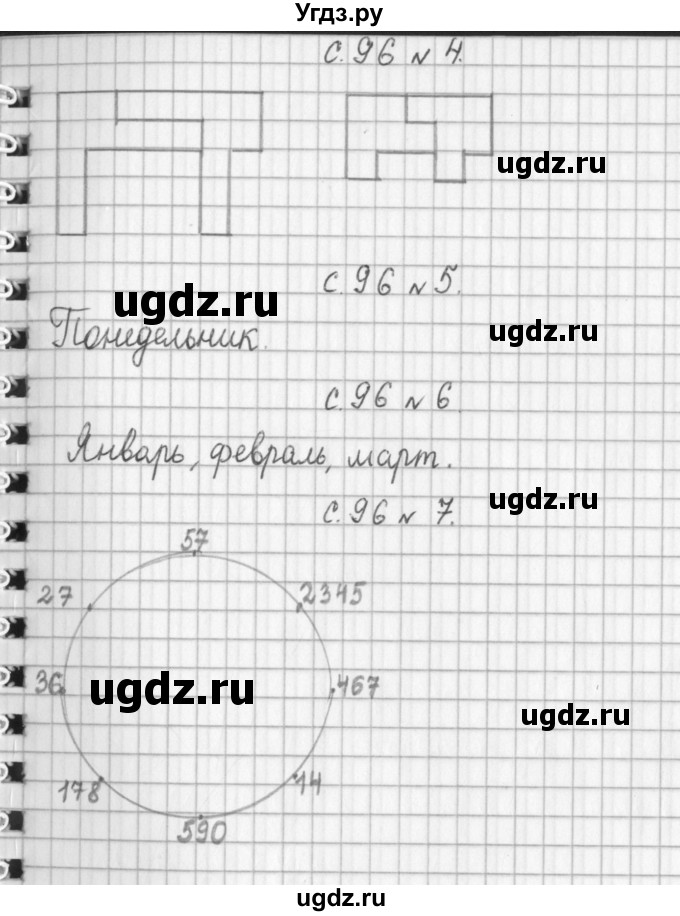 Угдз.ру
с. 96 № 4.
ugdz.ru
с. 96 № 5.
ugdz.ru
ugdz.ru
Понедельник.
с. 96 № 6.
Январь, февраль, март.
ugdz.ru
с. 96 № 7.
57
27
2345
36
467
ugdz.ru
ugdz.ru
178
14
590
ugdz.ru